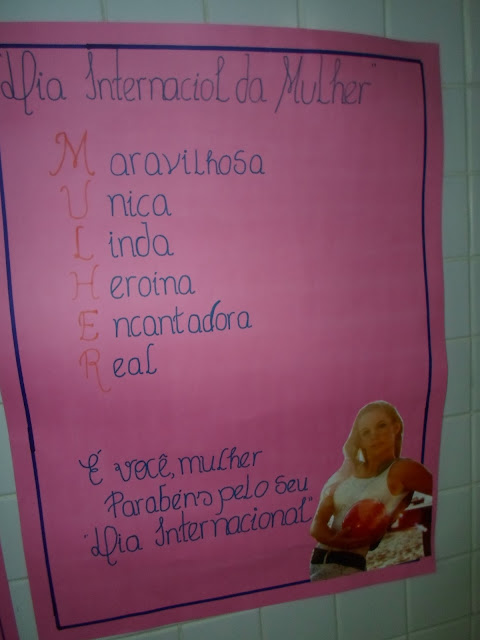 "Dia Internaciol da Mulher"
Maravilhosa
Unica
Linda
Heroina
Encantadora
Real
É você, mulher
Parabéns pelo seu
"Dia Internacional"